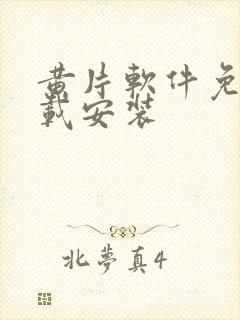 黃片軟件免
載安裝
北夢真4